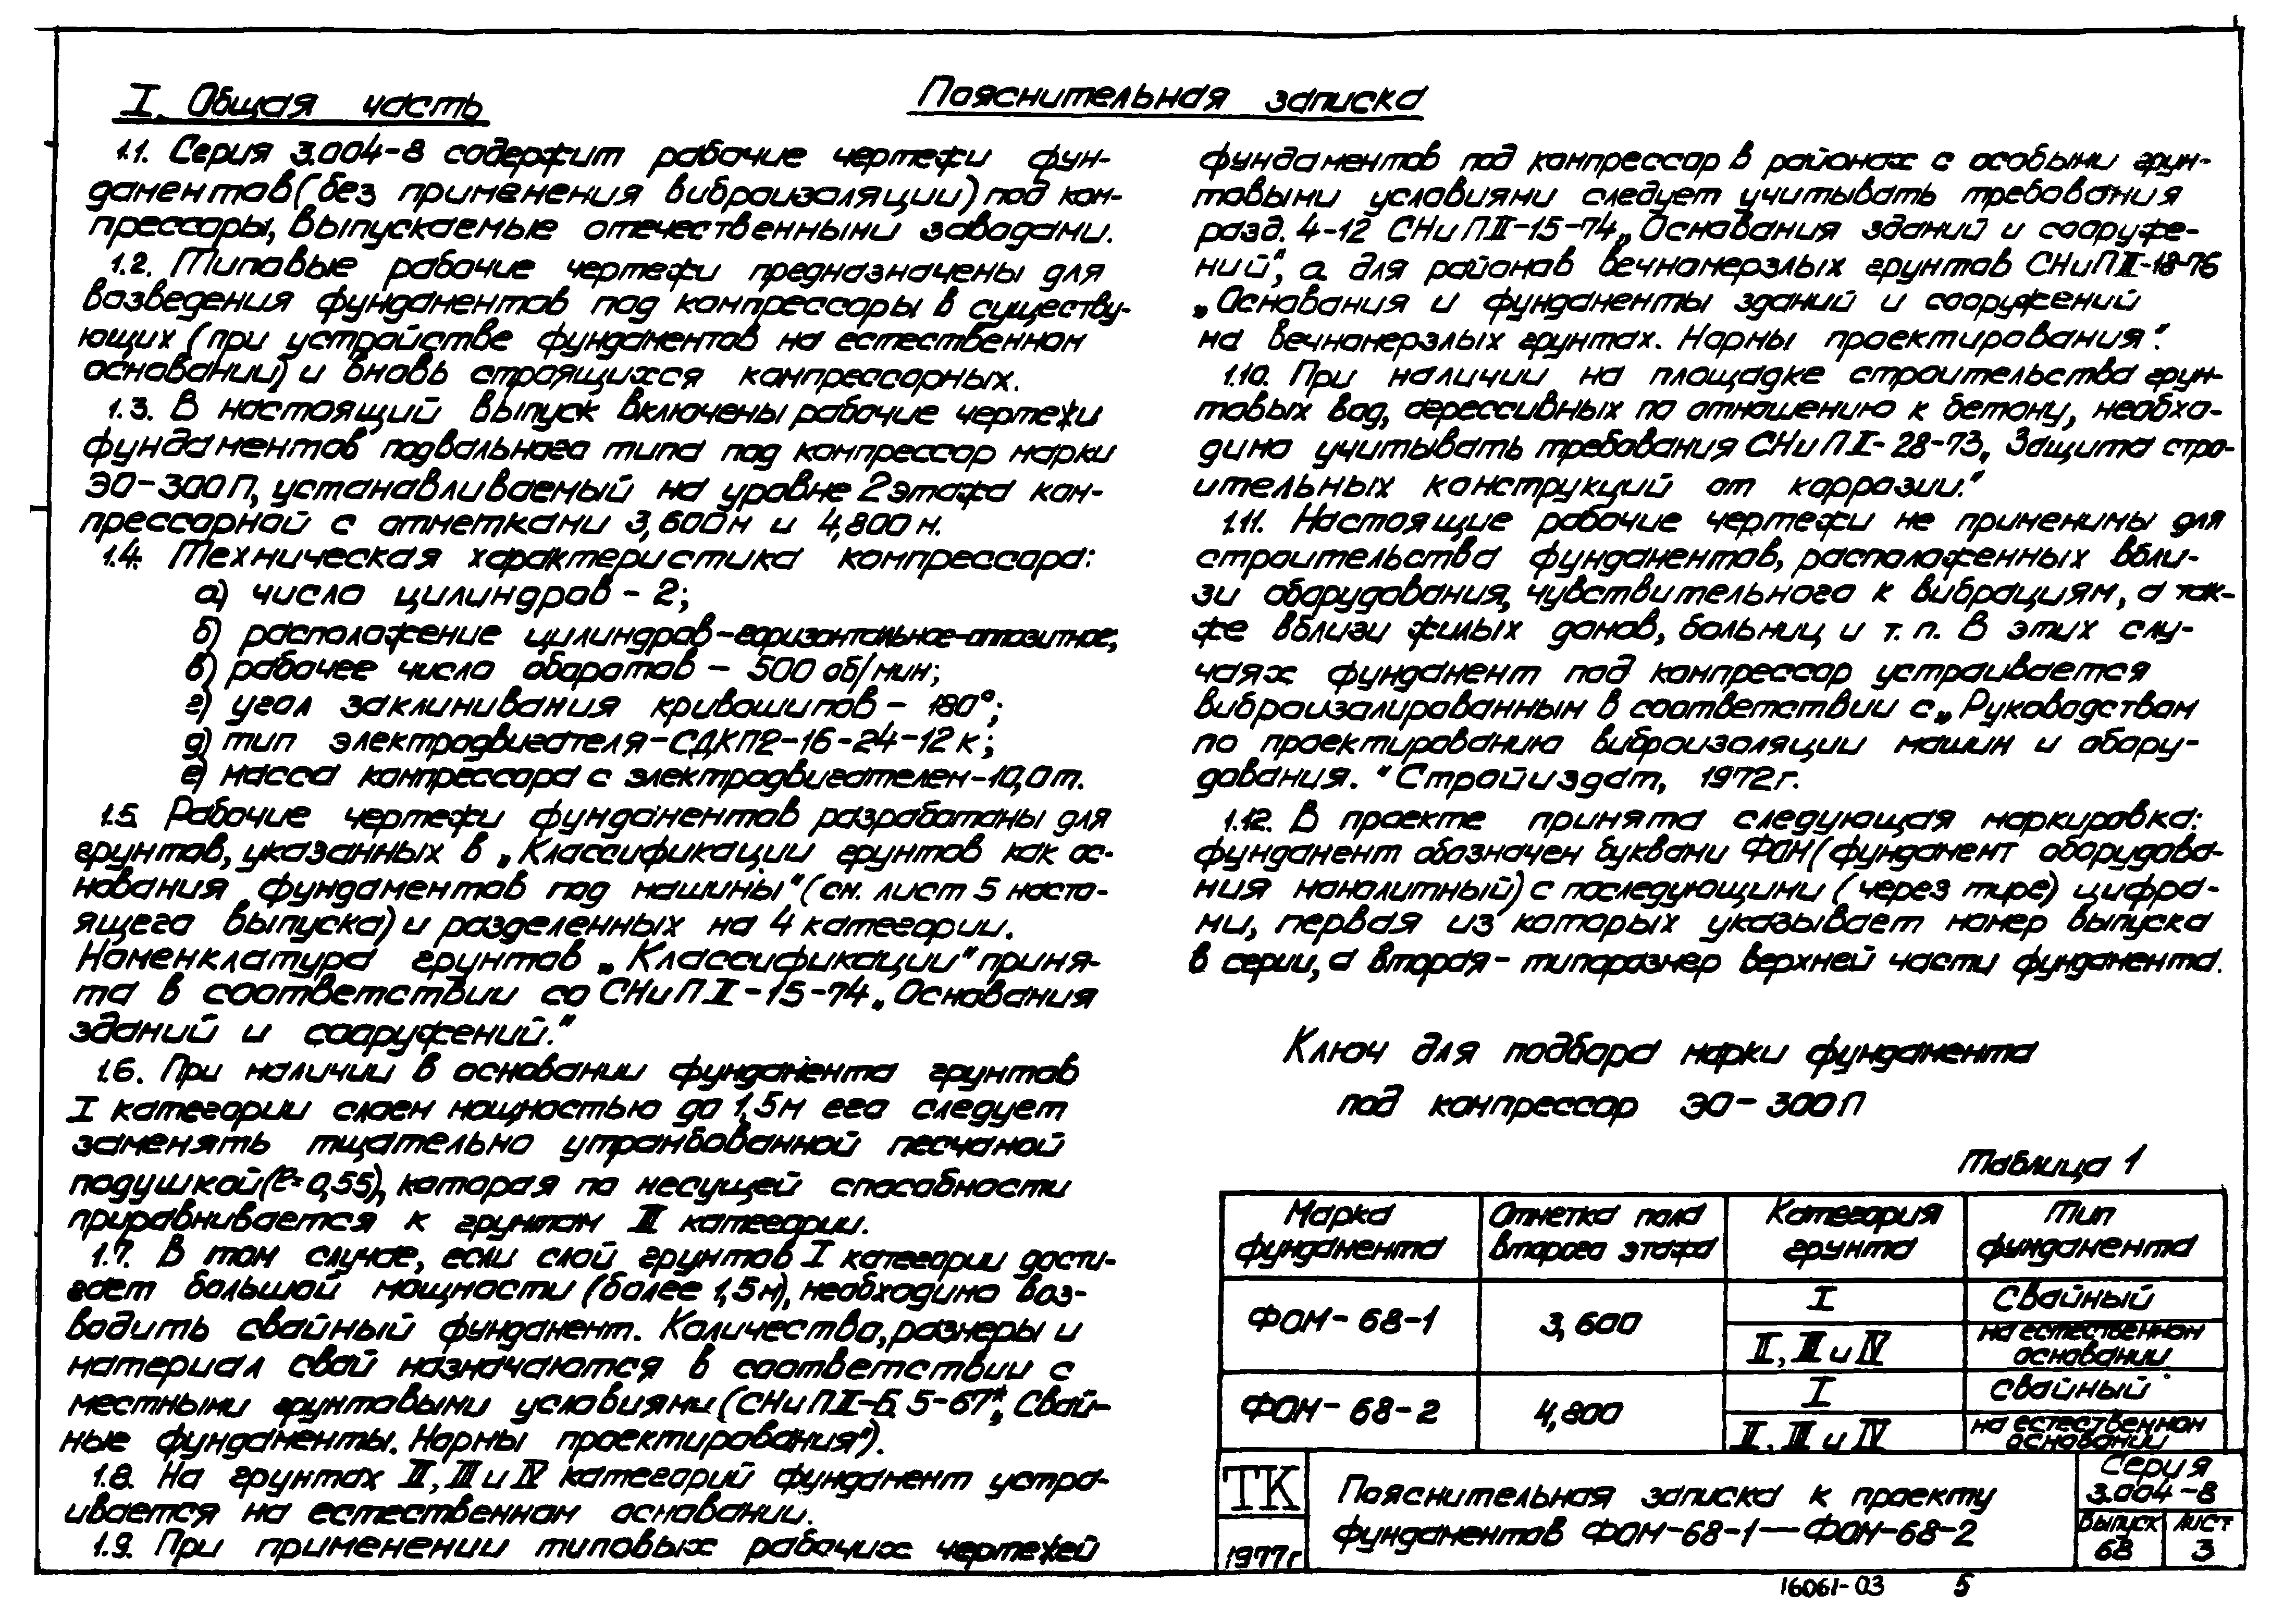 Пояснительная записка
I. Общая часть
1.1. Серия 3.004-8 содержит рабочие чертежи фун-
даментов (без применения виброизоляции) под ком-
прессоры, выпускаемые отечественными заводами.
1.2. Типовые рабочие чертежи предназначены для
возведения фундаментов под компрессоры в существу-
ющих (при устройстве фундаментов на естественном
основании) и вновь строящихся компрессорных.
1.3. В настоящий выпуск включены рабочие чертежи
фундаментов подвального типа под компрессор марки
ЭО-300П, устанавливаемый на уровне 2 этажа ком-
прессорной с отметками 3,600м и 4,800м.
1.4. Техническая характеристика компрессора:
а) число цилиндров - 2;
б) расположение цилиндров - горизонтальное-оппозитное;
в) рабочее число оборотов - 500 об/мин;
г) угол заклинивания кривошипов - 180°;
д) тип электродвигателя - СДКП2-16-24-12к;
е) масса компрессора с электродвигателем - 10,0т.
1.5. Рабочие чертежи фундаментов разработаны для
грунтов, указанных в „Классификации грунтов как ос-
нования фундаментов под машины" (см. лист 5 насто-
ящего выпуска) и разделенных на 4 категории.
Номенклатура грунтов „Классификации" приня-
та в соответствии со СНиП II-15-74 „Основания
зданий и сооружений."
1.6. При наличии в основании фундамента грунтов
I категории слоем мощностью до 1,5м его следует
заменять тщательно утрамбованной песчаной
подушкой (е=0,55), которая по несущей способности
приравнивается к грунтам III категории.
1.7. В том случае, если слой грунтов I категории дости-
гает большой мощности (более 1,5м), необходимо воз-
водить свайный фундамент. Количество, размеры и
материал свай назначаются в соответствии с
местными грунтовыми условиями (СНиП II-Б.5-67* „Свай-
ные фундаменты. Нормы проектирования").
1.8. На грунтах II, III и IV категорий фундамент устра-
ивается на естественном основании.
1.9. При применении типовых рабочих чертежей
фундаментов под компрессор в районах с особыми грун-
товыми условиями следует учитывать требования
разд. 4-12 СНиП II-15-74 „Основания зданий и сооруже-
ний", а для районов вечномерзлых грунтов СНиП II-18-76
„Основания и фундаменты зданий и сооружений
на вечномерзлых грунтах. Нормы проектирования".
1.10. При наличии на площадке строительства грун-
товых вод, агрессивных по отношению к бетону, необхо-
димо учитывать требования СНиП II-28-73 „Защита стро-
ительных конструкций от коррозии."
1.11. Настоящие рабочие чертежи не применимы для
строительства фундаментов, расположенных вбли-
зи оборудования, чувствительного к вибрациям, а так-
же вблизи жилых домов, больниц и т.п. В этих слу-
чаях фундамент под компрессор устраивается
виброизолированным в соответствии с „Руководством
по проектированию виброизоляции машин и обору-
дования." Стройиздат, 1972г.
1.12. В проекте принята следующая маркировка:
фундамент обозначен буквами ФОМ (фундамент оборудова-
ния монолитный) с последующими (через тире) цифра-
ми, первая из которых указывает номер выпуска
в серии, а вторая - типоразмер верхней части фундамента.
Ключ для подбора марки фундамента
под компрессор ЭО-300П
Таблица 1
Марка фундамента | Отметка пола второго этажа | Категория грунта | Тип фундамента
ФОМ-68-1 | 3,600 | I | Свайный
II, III и IV | на естественном основании
ФОМ-68-2 | 4,800 | I | Свайный
II, III и IV | на естественном основании
ТК
1977г
Пояснительная записка к проекту
фундаментов ФОМ-68-1 — ФОМ-68-2
Серия
3.004-8
Выпуск 68
Лист 3
16061-03 5